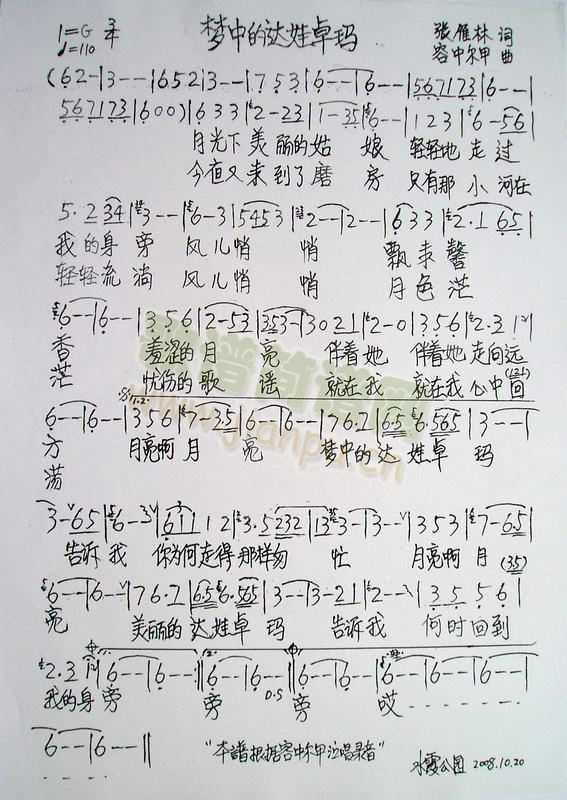 1=G 3/4 梦中的达娃卓玛 张雁林 词
♩=110 容中尔甲 曲
(62-|3--|1652|3--|1753|6--|6--|567173|6--|
567173|600)|633|2-23|1-35|6--|123|6-56|
月光下 美丽的姑 娘 轻轻地 走过
今夜又 来到了磨 房 只有那 小河在
5·234|3--|6-3|5453|2--|2--|633|2·165|
我的身 旁 风儿悄 悄 飘来馨
轻轻流 淌 风儿悄 悄 月色茫
6--|6--|3·56|2-53|353-|3021|2-0|3·56|2·31|
香 羞涩的月 亮 伴着她 伴着她走向远
茫 忧伤的歌 谣 就在我 就在我心中回
6--|6--|356|7-35|6--|6--|76·2|6·56·565|3--|
方 月亮啊月 亮 梦中的达娃卓 玛
荡
3-65|6-3|6112|3·5232|133-|3--|353|7-65|
告诉我 你为何走得那样匆 忙 月亮啊月 (35)
6--|6--|76·2|6·56·565|3--|3-21|2--|3556|
亮 美丽的达娃卓 玛 告诉我 何时回到
2·3|6--|6--:|6--|6--|6--|6--|6--|6--|6--|
我的身 旁 旁 D.S 旁 哎
6--|6--||
"本谱根据容中尔甲演唱录音" 水霞公园 2008.10.20